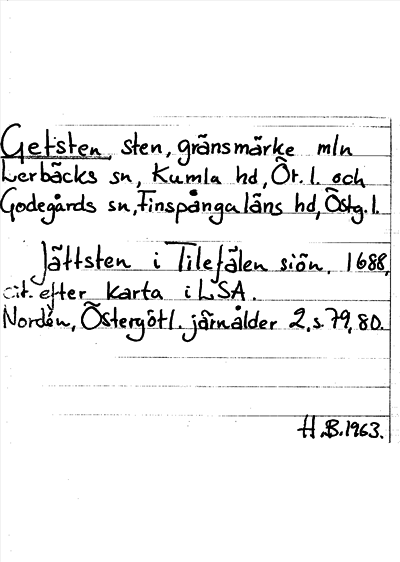 Getsten sten, gränsmärke mln
Lerbäcks sn, Kumla hd, Ör. l. och
Godegårds sn, Finspånga läns hd, Östg. l.
Jättsten i Tilefälen siön. 1688,
cit. efter karta i LSA.
Nordén, Östergötl. järnålder 2, s. 79, 80.
H.B. 1963.